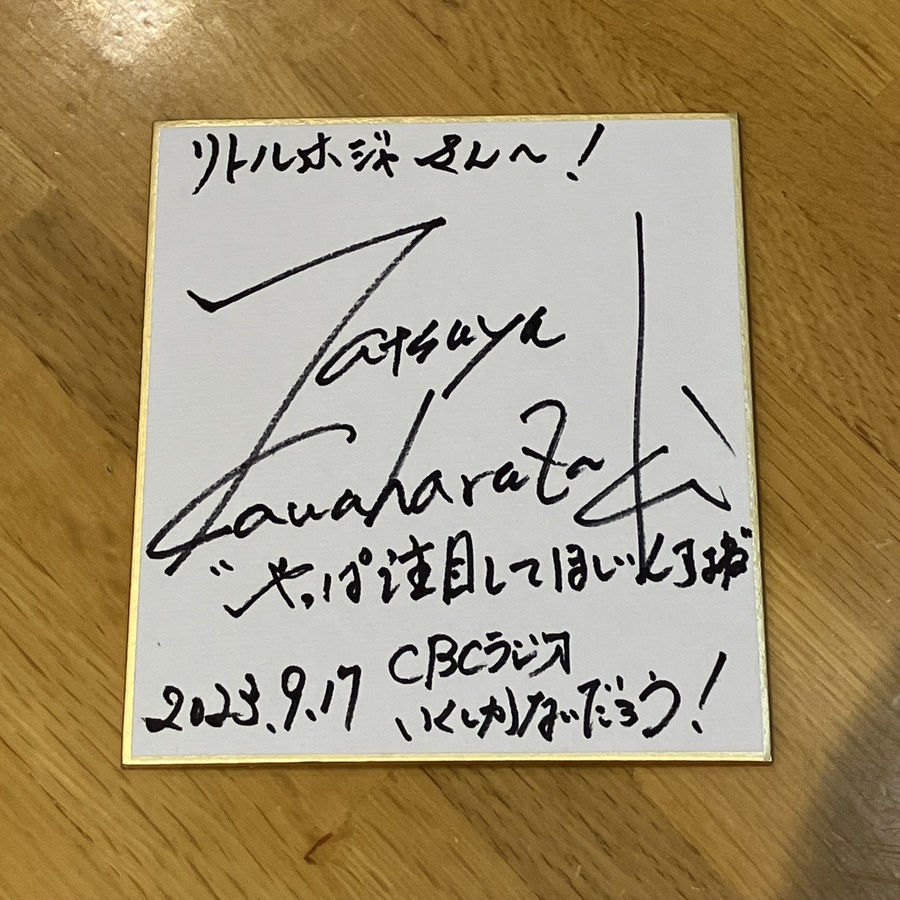 リトルホジャさん〜!
Tatsuya
Kawaharazaki
"やっぱ注目してほしい
2023.9.17 CBCラジオ
いくしかないだろう!